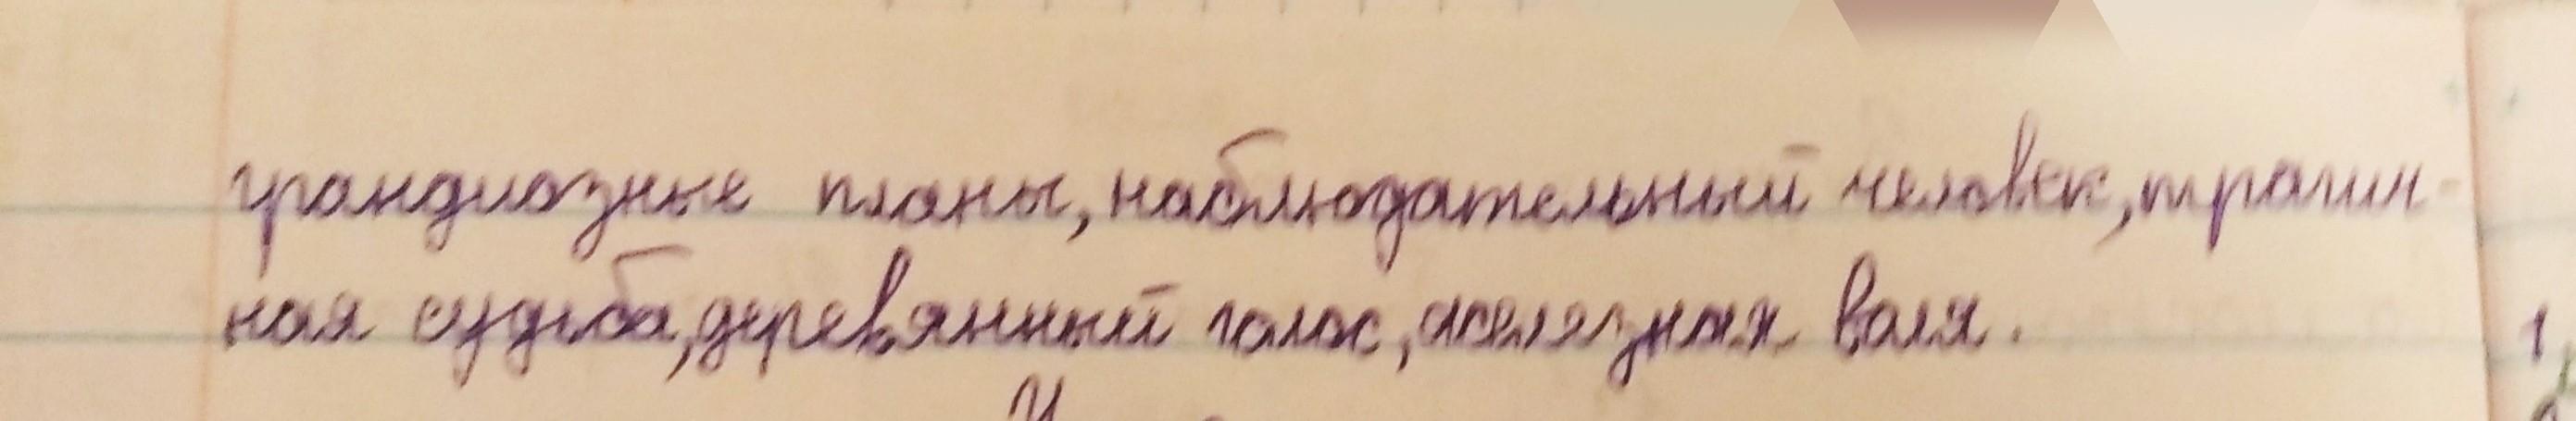 грандиозные планы, наблюдательный человек, трагич-
ная судьба, деревянный голос, железная воля.